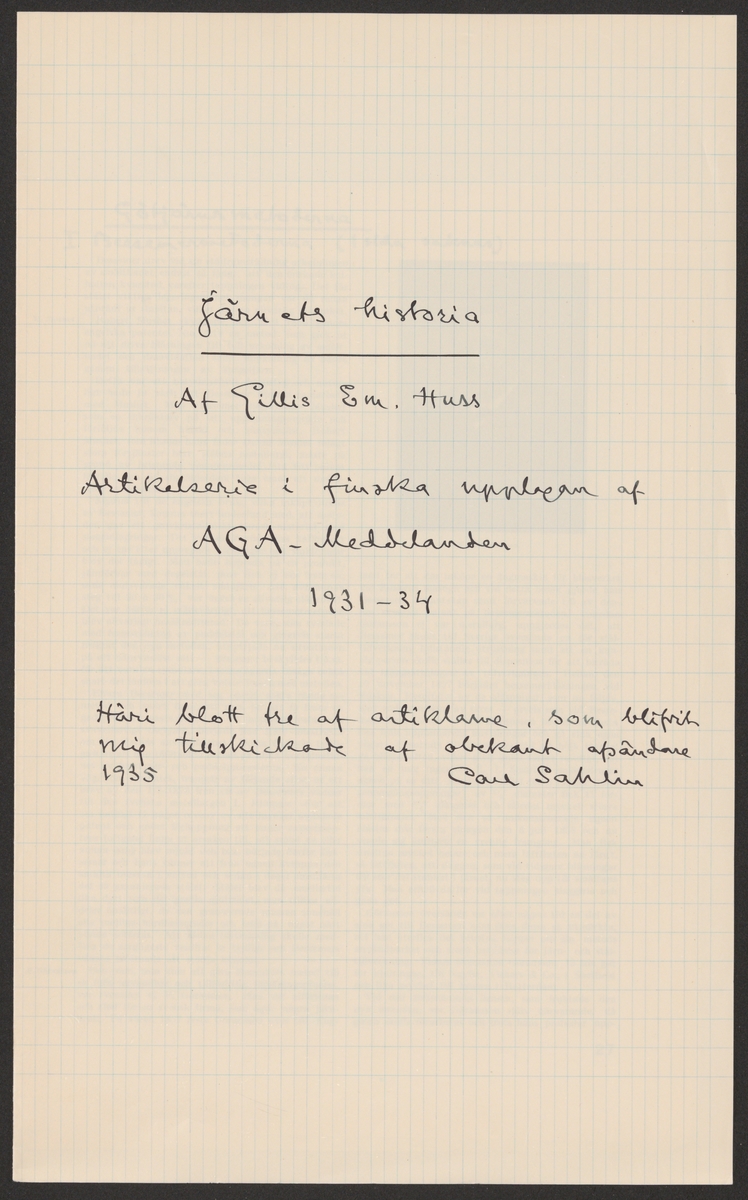 Järnets historia
Af Gillis Em. Huss
Artikelserie i finska upplagan af
AGA-Meddelanden
1931-34
Häri blott tre af artiklarne, som blifvit
mig tillskickade af obekant afsändare
1935 Carl Sahlin